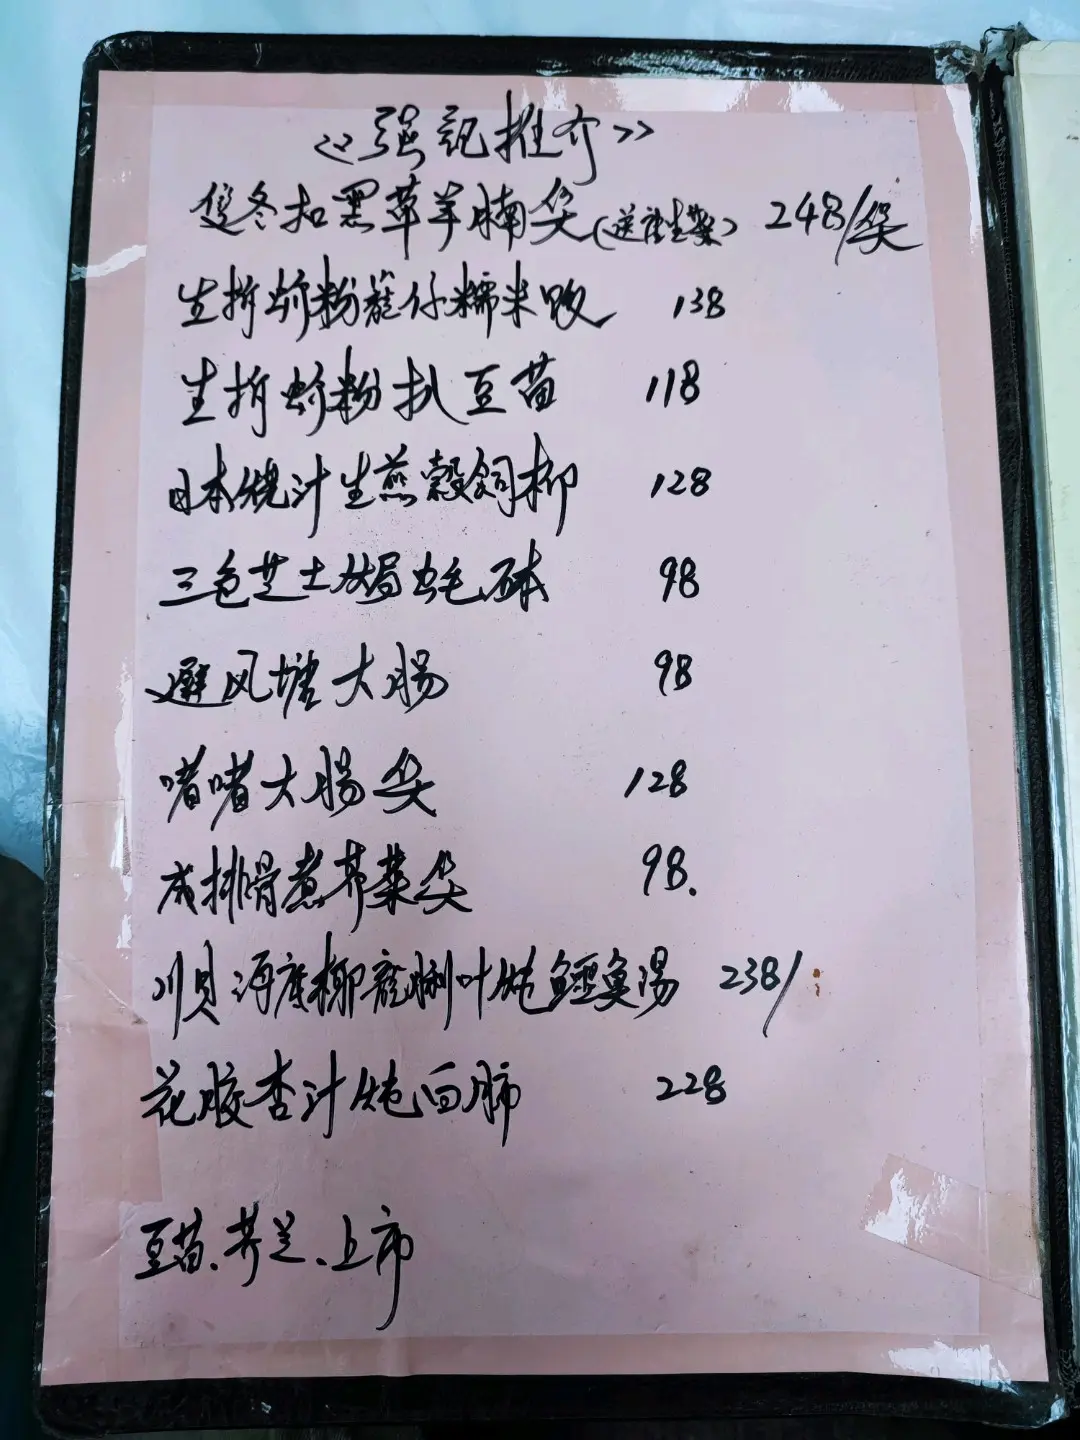 《强記推介》
雙冬扣黑草羊腩煲(送唐生菜) 248/煲
生拆蚧粉籠仔糯米飯 138
生拆蚧粉扒豆苗 118
日本燒汁生煎穀飼柳 128
三色芝士焗蚝 98
避风塘大腸 98
啫啫大腸煲 128
咸排骨煮芥菜煲 98.
川贝海底椰龍脷叶炖鳄魚湯 238/
花胶杏汁炖白肺 228
豆苗、芥兰、上市